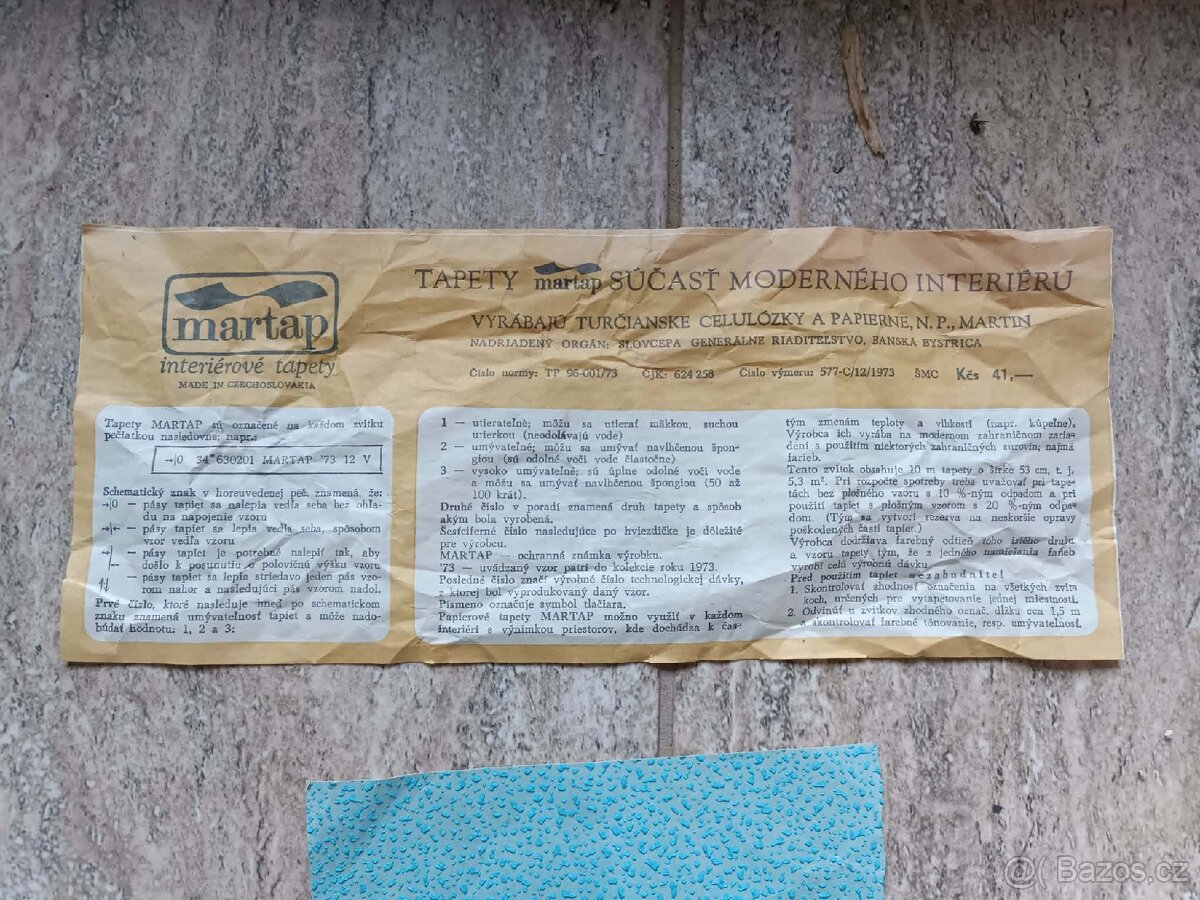 martap
interiérové tapety
MADE IN CZECHOSLOVAKIA
TAPETY martap SÚČASŤ MODERNÉHO INTERIÉRU
VYRÁBAJÚ TURČIANSKE CELULÓZKY A PAPIERNE, N. P., MARTIN
NADRIADENÝ ORGÁN: SLOVCEPA GENERÁLNE RIADITEĽSTVO, BANSKÁ BYSTRICA
Číslo normy: TP 96-001/73 ČJK: 624 258 Číslo výmeru: 577-C/12/1973 ŠMC Kčs 41,—
Tapety MARTAP sú označené na každom zvitku
pečiatkou nasledovne; napr.:
→|0 34*630201 MARTAP '73 12 V
Schematický znak v horeuvedenej peč. znamená, že:
→|0 — pásy tapiet sa nalepia vedľa seba bez ohľa-
du na napojenie vzoru
→|← — pásy tapiet sa lepia vedľa seba, spôsobom
vzor vedľa vzoru
— pásy tapiet je potrebné nalepiť tak, aby
došlo k posunutiu o polovičnú výšku vzoru
⇅ — pásy tapiet sa lepia striedavo jeden pás vzo-
rom nahor a nasledujúci pás vzorom nadol.
Prvé číslo, ktoré nasleduje hneď po schematickom
znaku znamená umývateľnosť tapiet a môže nado-
búdať hodnotu: 1, 2 a 3:
1 — utierateľné; môžu sa utierať mäkkou, suchou
utierkou (neodolávajú vode)
2 — umývateľné; môžu sa umývať navlhčenou špon-
giou (sú odolné voči vode čiastočne)
3 — vysoko umývateľné; sú úplne odolné voči vode
a môžu sa umývať navlhčenou špongiou (50 až
100 krát).
Druhé číslo v poradí znamená druh tapety a spôsob
akým bola vyrobená.
Šesťciferné číslo nasledujúce po hviezdičke je dôležité
pre výrobcu.
MARTAP — ochranná známka výrobku.
'73 — uvádzaný vzor patrí do kolekcie roku 1973.
Posledné číslo značí výrobné číslo technologickej dávky,
z ktorej bol vyprodukovaný daný vzor.
Písmeno označuje symbol tlačiara.
Papierové tapety MARTAP možno využiť v každom
interiéri s výnimkou priestorov, kde dochádza k čas-
tým zmenám teploty a vlhkosti (napr. kúpeľne).
Výrobca ich vyrába na modernom zahraničnom zaria-
dení s použitím niektorých zahraničných surovín; najmä
farieb.
Tento zvitok obsahuje 10 m tapety o šírke 53 cm, t. j.
5,3 m². Pri rozpočte spotreby treba uvažovať pri tape-
tách bez plošného vzoru s 10 %-ným odpadom a pri
použití tapiet s plošným vzorom s 20 %-ným odpa-
dom. (Tým sa vytvorí rezerva na neskoršie opravy
poškodených častí tapiet.)
Výrobca dodržiava farebný odtieň toho istého druhu
a vzoru tapety tým, že z jedného namiešania farieb
vyrobí celú výrobnú dávku.
Pred použitím tapiet nezabudnite!
1. Skontrolovať zhodnosť označenia na všetkých zvit-
koch, určených pre vytapetovanie jednej miestnosti.
2. Odvinúť u zvitkov zhodného označ. dĺžku cca 1,5 m
a skontrolovať farebné tónovanie, resp. umývateľnosť.
@( Bazos.cz